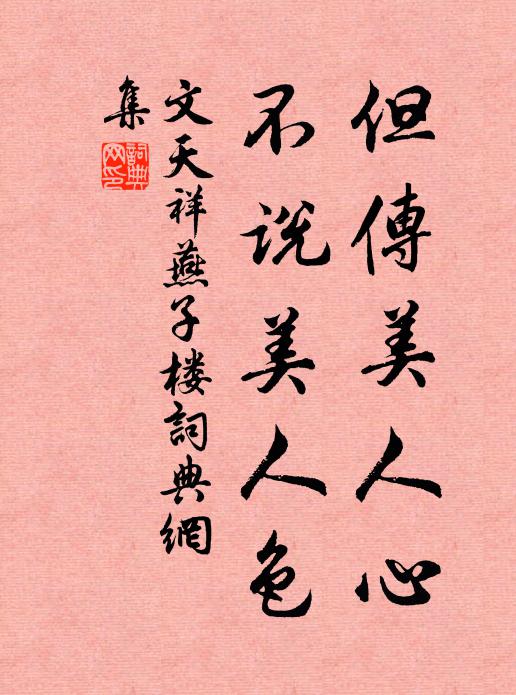 但傳美人心
不说美人色
文天祥燕子楼詞典網
集
詞典網印